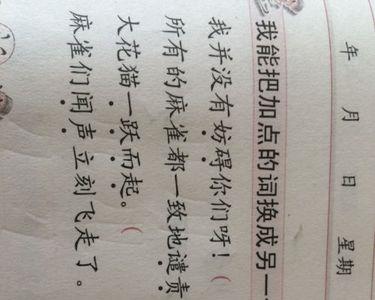 年 月 日 星期
我能把加点的词换成另一
我并没有妨碍你们呀！（
所有的麻雀都一致地谴责
大花猫一跃而起。（
麻雀们闻声立刻飞走了。